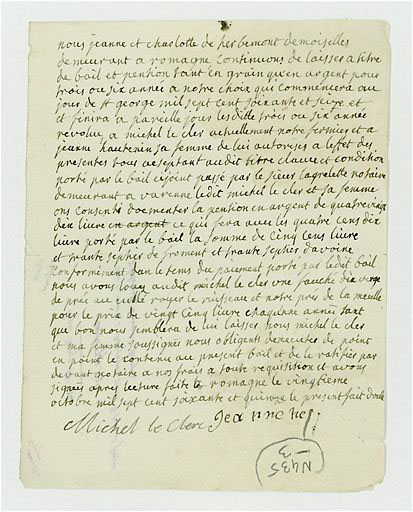 nous jeanne et charlotte de herbemont demoiselles
demeurant a romagne continuons de laisser a titre
de bail et pention tant en grain quen argent pour
trois ou six année a notre choix qui commencera au
jour de st george mil sept cent soixante et seize et
et finira a pareille jour lesditte trois ou six année
revolue a michel le clerc actuellement notre fermier et a
jeanne sa femme de lui autorisée a leffet des
presentes tous acseptant audit titre clause et condition
porté par le bail cijoint passé par le sieur lagrelette notaire
demeurant a varenne ledit michel le clerc et sa femme
ons consenti daumenter la pention en argent de quatrevingt
dix livre en argent ce qui fera avec les quatre cens dix
livre porté par le bail la somme de cinq cens livre
et trante septier de froment et trante septier davoine
conformement dans le tems du paiement porté par ledit bail
nous avons louez audit michel le clerc une fauché dix verge
de prez au culle royer le ruisseau et notre prez de la meulle
pour le prix de vingt cinq livre chaqunne année tant
que bon nous semblera de lui laisser nous michel le clerc
et ma femme soussignés nous obligent dexecuter de point
en point le contenu au present bail et de le ratifier par
devant notaire a nos frais a toute requisition et avons
signés apres lecture faite a romagne le vingtieme
octobre mil sept cent soixante et quinze le present fait double
Michel le clerc Jeanne
N435
3